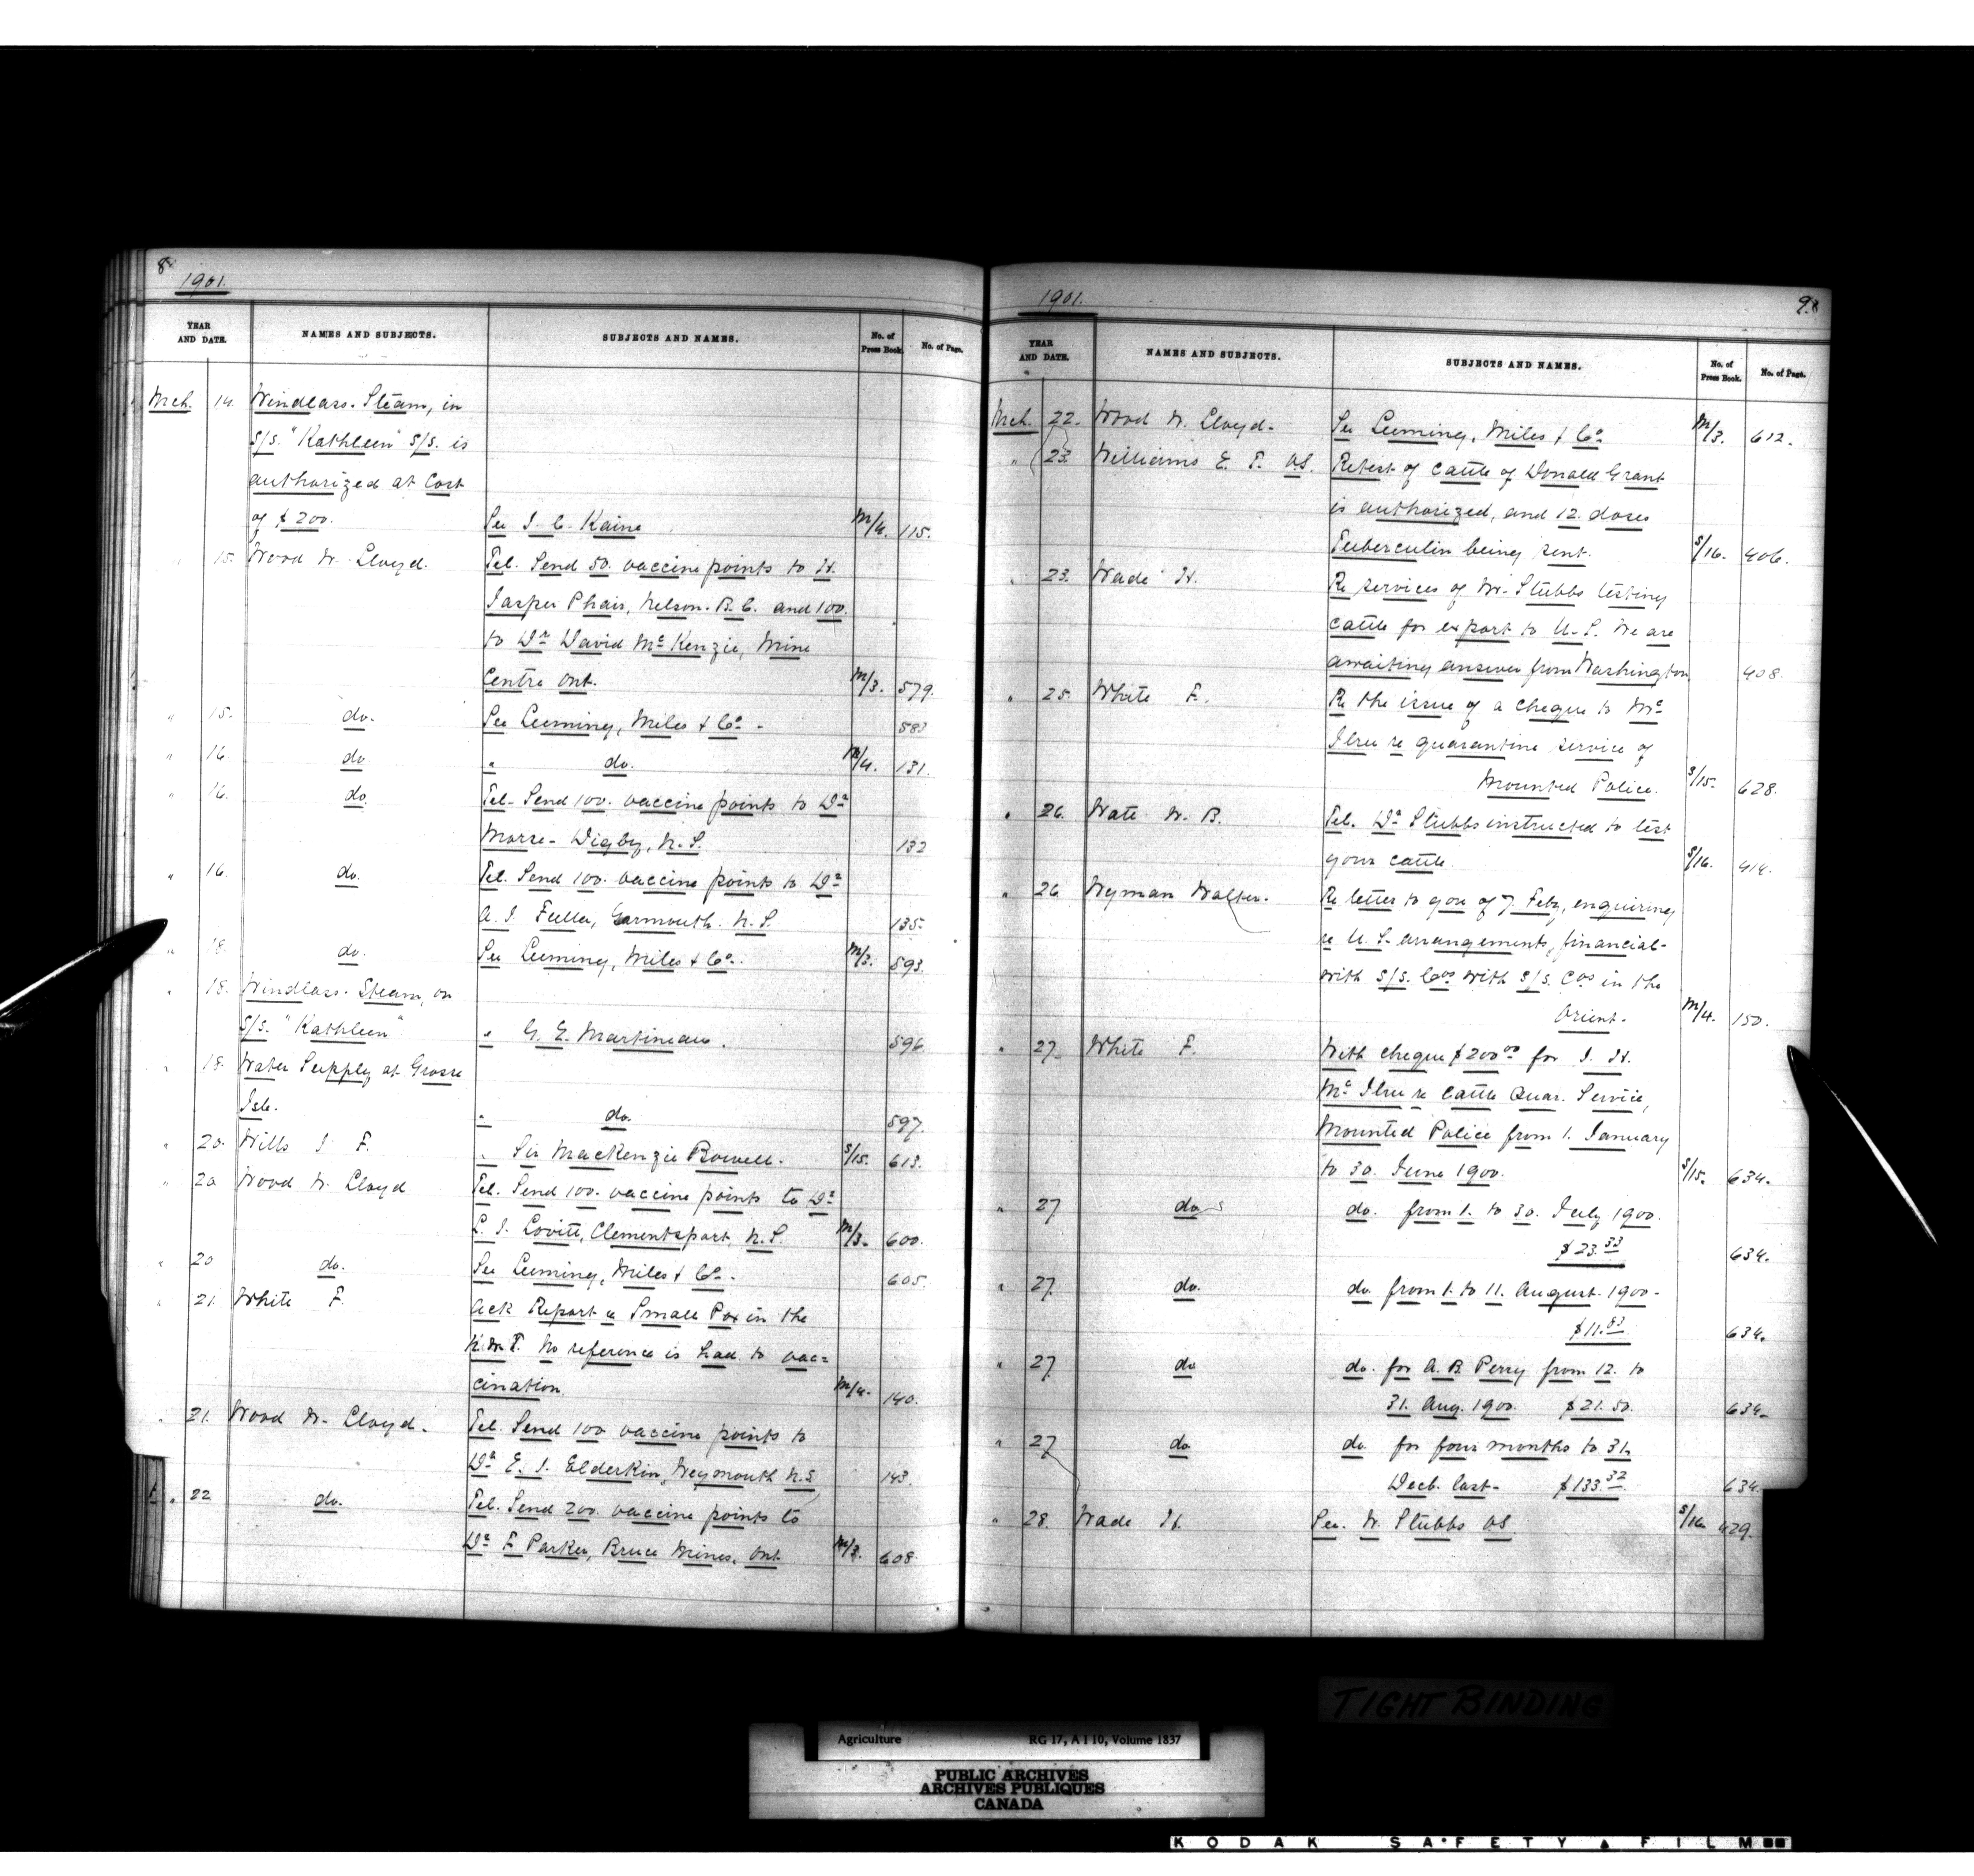 8
1901.
YEAR AND DATE. NAMES AND SUBJECTS. SUBJECTS AND NAMES. No. of Press Book. No. of Page.
Mch. 14. Windlass. Steam, in
S/S. "Kathleen" S/S. is
authorized at Cost
of $200. See J. C. Kaine M/4. 115.
" 15. Wood W. Lloyd. Tel. Send 50. vaccine points to H.
Jasper Phair, Nelson. B.C. and 100.
to Dr David McKenzie, Mine
Centre Ont. M/3. 579.
" 15. do. See Leeming, Miles & Co. 583
" 16. do " do. M/4. 131.
" 16. do Tel. Send 100. vaccine points to Dr
Morse - Digby, N.S. 132
" 16. do. Tel. Send 100. vaccine points to Dr
A. J. Fuller, Yarmouth. N.S. 135.
" 18. do. See Leeming, Miles & Co. M/3. 593.
" 18. Windlass. Steam, on
S/S. "Kathleen" " G. E. Martineau. 596.
" 18. Water Supply at Grosse
Isle. " do. 597.
" 20. Wills J F. " Sir MacKenzie Bowell. S/15. 613.
" 20 Wood W. Lloyd Tel. Send 100. vaccine points to Dr
L. J. Lovitt, Clementsport, N.S. M/3. 600.
" 20 do. See Leeming, Miles & Co. 605.
" 21. White F. Ack Report re Small Pox in the
N.W.T. No reference is had to vac=
cination. M/4. 140.
" 21. Wood W. Lloyd. Tel. Send 100 vaccine points to
Dr E. J. Elderkin, Weymouth N.S 143.
" 22 do. Tel. Send 200. vaccine points to
Dr F Parker, Bruce Mines. Ont M/3. 608.
1901. 9.
YEAR AND DATE. NAMES AND SUBJECTS. SUBJECTS AND NAMES. No. of Press Book. No. of Page.
Mch. 22. Wood W. Lloyd. See Leeming, Miles & Co. M/3. 612.
" 23. Williams E. T. VS. Retest of cattle of Donald Grant
is authorized, and 12. doses
Tuberculin being sent. S/16. 406.
" 23. Wade H. Re services of Mr. Stubbs testing
cattle for export to U.S. We are
awaiting answer from Washington 408.
" 25. White F. Re the issue of a cheque to Mc
Ilree re quarantine service of
Mounted Police. S/15. 628.
" 26. Wate W. B. Tel. Dr Stubbs instructed to test
your cattle. S/16. 414.
" 26 Wyman Walter. Re letter to you of 7. Feby, enquiring
re U.S. arrangements, financial-
with S/S. Cos with S/S. Cos in the
Orient. M/4. 150.
" 27. White F. With cheque $200.00 for J. H.
McIlree re Cattle Quar. Service,
Mounted Police from 1. January
to 30. June 1900. S/15. 634.
" 27 do do. from 1. to 30. July 1900.
$23.33 634.
" 27. do. do. from 1. to 11. August. 1900-
$11.83 634.
" 27 do do. for A. B. Perry from 12. to
31. Aug. 1900. $21.50. 634.
" 27 do do. for four months to 31.
Decb. last- $133.32. 634.
" 28. Wade H. See. W. Stubbs VS. S/16 429.
TIGHT BINDING
Agriculture RG 17, A I 10, Volume 1837
PUBLIC ARCHIVES
ARCHIVES PUBLIQUES
CANADA
KODAK SAFETY FILM